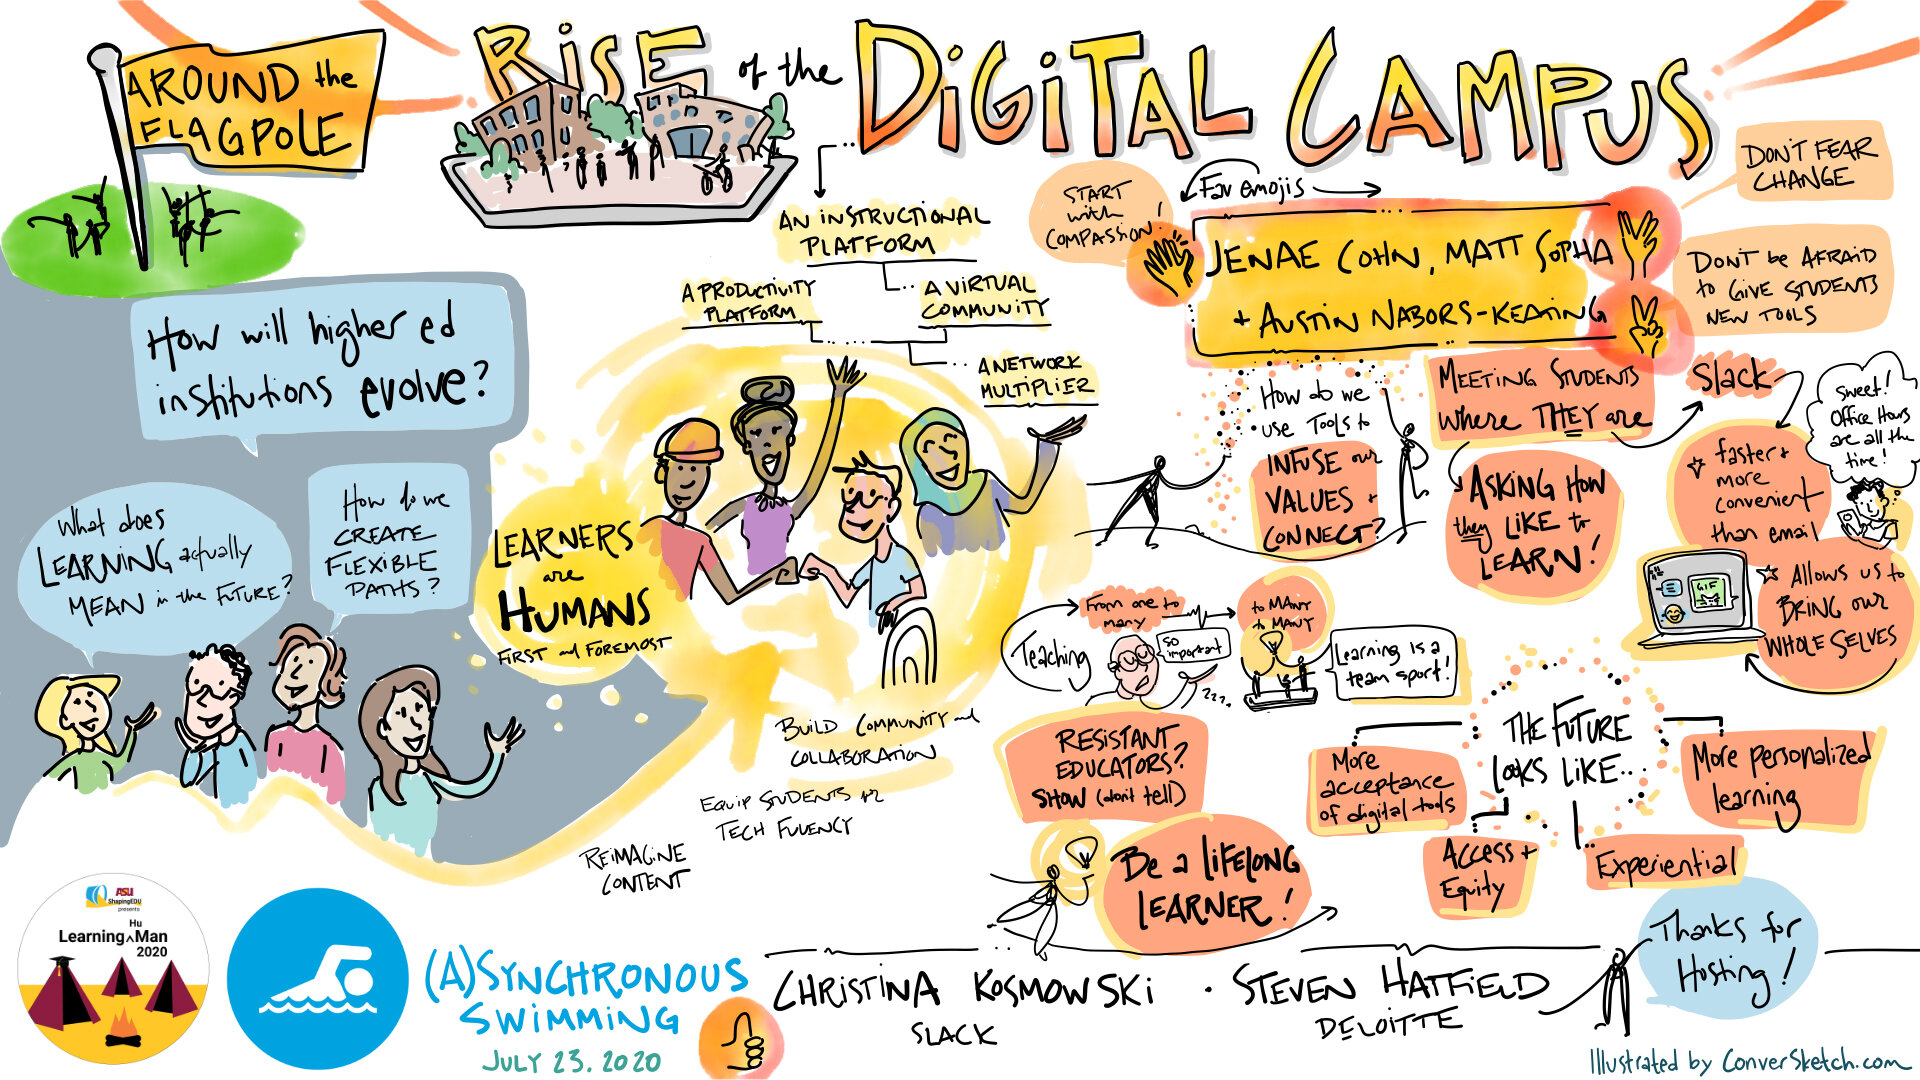 AROUND the
FLAGPOLE
RISE of the DIGITAL CAMPUS
How will higher ed
institutions evolve?
What does
LEARNING actually
MEAN in the FUTURE?
How do we
CREATE
FLEXIBLE
PATHS?
AN INSTRUCTIONAL
PLATFORM
A PRODUCTIVITY
PLATFORM
A VIRTUAL
COMMUNITY
A NETWORK
MULTIPLIER
LEARNERS
are
HUMANS
FIRST and FOREMOST
BUILD COMMUNITY and
COLLABORATION
EQUIP STUDENTS for
TECH FLUENCY
REIMAGINE
CONTENT
START
with
COMPASSION!
Fav emojis
JENAE COHN, MATT SOPHA
+ AUSTIN NABORS-KEATING
DON'T FEAR
CHANGE
DON'T be AFRAID
to GIVE STUDENTS
NEW TOOLS
How do we
use TOOLS to
INFUSE our
VALUES +
CONNECT?
MEETING STUDENTS
where THEY are
ASKING HOW
they LIKE to
LEARN!
Slack
faster +
more
convenient
than email
Sweet!
Office Hours
are all the
time!
GIF
ALLOWS US to
BRING our
WHOLE SELVES
Teaching
From one to
many
to MANY
to MANY
SO
important
???.
Learning is a
team sport!
RESISTANT
EDUCATORS?
SHOW (don't tell)
Be a LIFELONG
LEARNER!
THE FUTURE
LOOKS LIKE...
More
acceptance
of digital tools
Access +
Equity
Experiential
More personalized
learning
Thanks for
Hosting!
ASU
ShapingEDU
presents
Hu
Learning^Man
2020
(A)SYNCHRONOUS
SWIMMING
JULY 23. 2020
CHRISTINA KOSMOWSKI · STEVEN HATFIELD
SLACK
DELOITTE
Illustrated by ConverSketch.com